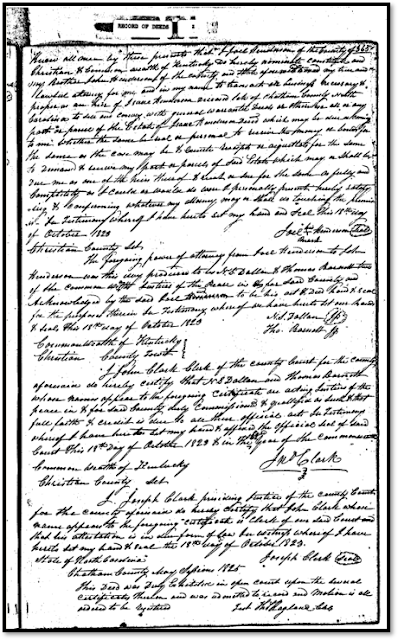 RECORD OF DEEDS
365
Know all men by these presents that I Joel Henderson of the County of
Christian & Common wealth of Kentucky do hereby nominate constitute and
my Brother John Henderson of the County and State aforesaid my true and
Lawful attorney for me and in my name to transact all business necessary &
proper as an heir of Isaac Henderson deceased late of Chatham County North
Carolina to sell and convey with general warrantee Deeds or otherwise all or any
part or parcel of the Estate of Isaac Henderson Decd which may be due or coming
to me whether the same be real or personal to receive the money or bonds for
the same as the case may be & execute receipts or acquittals for the same
to Demand & recover any part or parcels of said Estate which may or shall be
due me as one of the heirs thereof & such or sue for the same as fully and
Completely as I could or would do were I personally present hereby ratify
ing & Confirming whatever my attorney may or shall do touching the premises
In Testimony whereof I have hereto set my hand and Seal this 18th day
of October 1823
Joel Henderson Seal
mark
Christian County Sct.
The forgoing power of attorney from Joel Henderson to John
Henderson was this day produced to us N.S. Dallam & Thomas Barnett two
of the common wealth Justices of the Peace in & for said County and
Acknowledged by the said Joel Henderson to be his act & deed hand & seal
for the purposes therein be Testimony whereof we have hereto set our hands
& seals this 18th day of October 1823
N.S. Dallam
Tho. Barnett
Commonwealth of Kentucky
Christian County towit
I John Clark Clerk of the county Court for the county
aforesaid do hereby certify that N S Dallam and Thomas Barnett
whose names appear to the foregoing Certificate are acting Justices of the
peace in & for said County duly Commissioned & qualified as such & that
full faith & credit is due to all their official acts In Testimony
whereof I have hereto set my hand & affixed the Official Seal of said
Court this 18th Day of October 1823 & in the year of the commonwealth
Jno Clark
Common wealth of Kentucky
Christian County Sct.
I Joseph Clark presiding Justice of the county Court
for the County aforesaid do hereby Certify that John Clark whose
name appears to the foregoing certificate is Clerk of our said Court and
that his attestation is in due form of Law In testimony whereof I have
hereto set my hand & seal the 18th day of October 1823.
Joseph Clark Seal
State of North Carolina
Chatham County May Session 1825
This Deed was Duly Exhibited in open court upon the several
certificates thereon and was admitted to record and Motion is all
ordered to be registered
Test Tho Ragland